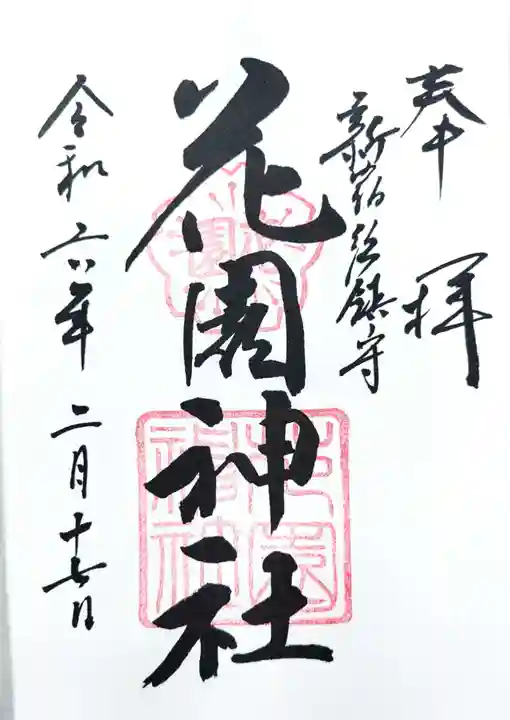 奉拝
新宿総鎮守
花園神社
令和六年二月十七日
花園
花園神社